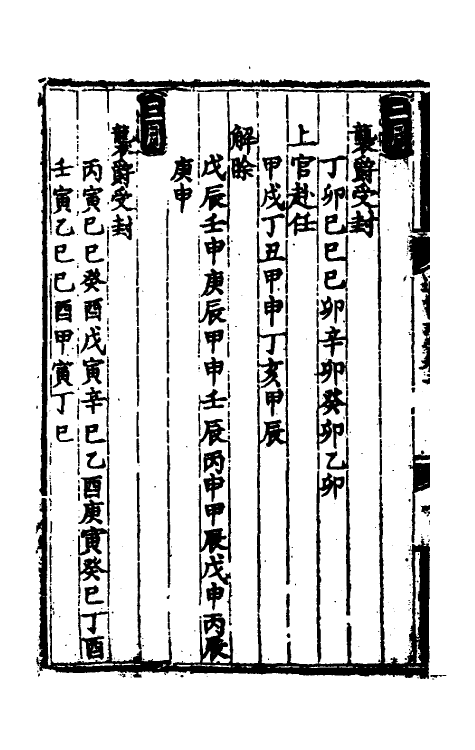 二月
襲爵受封
丁卯巳巳巳卯辛卯癸卯乙卯
上官赴任
甲戌丁丑甲申丁亥甲辰
解除
戊辰壬申庚辰甲申壬辰丙申甲辰戊申丙辰
庚申
三月
襲爵受封
丙寅巳巳癸酉戊寅辛巳乙酉庚寅癸巳丁酉
壬寅乙巳巳酉甲寅丁巳